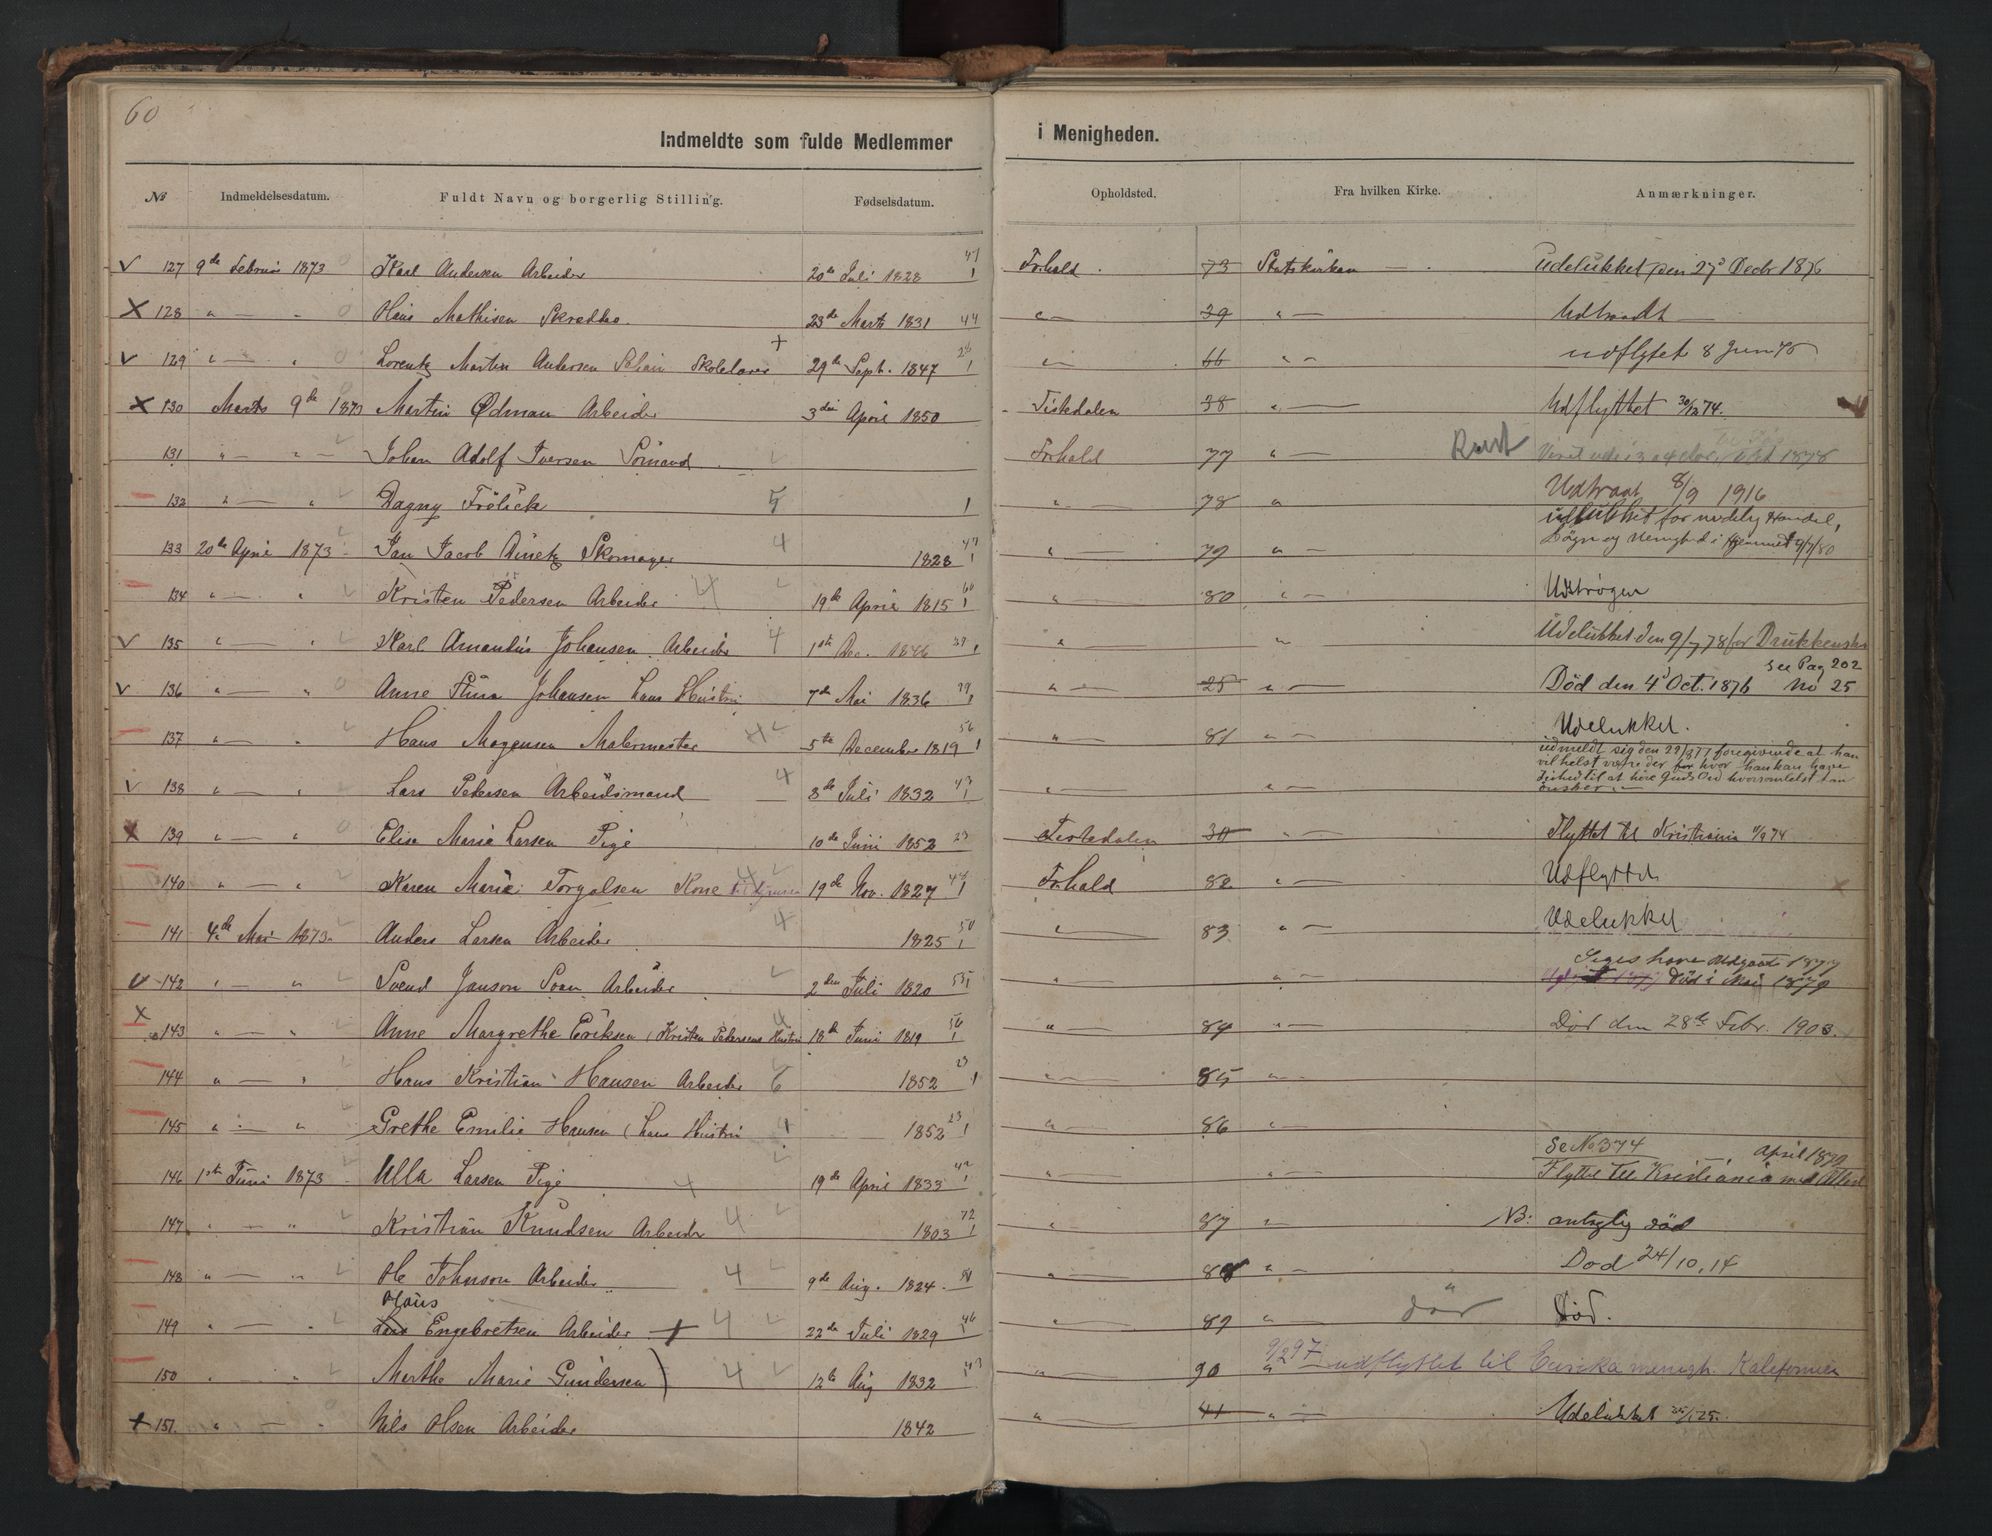 60
Indmeldte som fulde Medlemmer i Menigheden.
No Indmeldelsesdatum. Fuldt Navn og borgerlig Stilling. Fødselsdatum. Opholdsted. Fra hvilken Kirke. Anmærkninger.
127 9de 1873 Karl Andersen Arbeider 20de Juli 1828 47 Frhald 73 Statskirken Udelukket den 27 Decbr 1876
128 " — " Hans Mathisen 23de Marts 1831 44 " — 39 " — Udtraadt
129 " — " Lorentz Martin Andersen Skolelærer + 29de Sept. 1847 28 " — 66 " — udflytet 8 Juni 76
130 Marts 9de 1873 Martin Ødman Arbeider 3die April 1850 Tistedalen 38 " — Udflyttet 30/12 74.
131 " — " Johan Adolf Iversen Sömand Frhald 77 " — 1878
132 " — " Dagny Frölich 5 " — 78 " Udtraadt 8/9 1916
133 20de April 1873 Jan Jacob Skomager 4 1828 47 " — 79 " — udlukket for uredelig Handel,
Løgn og Uenighed i Hjemmet 9/7/80
134 " — " Kristen Pedersen Arbeider 4 19de April 1815 60 " — 80 " —
135 " — " Karl Amandus Johansen Arbeider 4 1ste Dec. 1846 29 " — " Udelukket den 9/7 78 for
136 " — " Anne Stina Johansen hans Hustru 7de Mai 1836 39 " — 25 " — Död den 4 Oct. 1876 see Pag 202 No 25
137 " — " Hans Mogensen Malermester 4 5te December 1819 56 " — 81 " — Udelukket.
138 " — " Lars Pedersen Arbeidsmand 4 8de Juli 1832 43 " — " — udmeldt sig den 29/3 77 foregivende at han
vil helst være der hvor han kan have
frihed til at høre Guds Ord hvorsomhelst han
ønsker. —
139 " — " Elise Marie Larsen Pige 10de Juni 1852 23 Tistedalen 30 " — Flyttet til Kristiania 74
140 " — " Karen Marie Torgalsen Kone 4 19de Nov. 1827 47 Frhald 82 " —
141 4de Mai 1873. Anders Larsen Arbeider 4 1825 50 " — 83 " — Udelukket
142 " — " Svend Janson Arbeider 2den Juli 1820 55 " — " — Siges have udgaat 1877
Död i Mai 1879
143 " — " Anne Margrethe Eriksen (Kristen Pedersens Hustru 4 18de Juni 1819 56 " — 84 " — Död den 28de Febr. 1903.
144 " — " Hans Kristian Hansen Arbeider 6 1852 23 " — 85 " —
145 " — " Grethe Emilie Hansen (hans Hustru 1852 23 " — 86 " —
146 1ste Juni 1873 Ulla Larsen Pige 4 19de April 1833 42 " — " — Se No 374 April 1879
Flyttet til Kristiania med
147 " — " Kristian Knudsen Arbeider 4 1803 72 " — 87 " — NB: antagelig död
148 " — " Ole Johnson Arbeider 4 9de Aug. 1824 " — 88 " — Död 24/10, 14
149 " — " Hans
Lars Engebretsen Arbeider + 4 22de Juli 1829 46 " — 89 " död Död.
150 " — " Marthe Marie Gundersen) 4 12te Aug 1832 43 " — 90 " 9/2 97 udflyttet til Eureka menigh. Kalifornien
151. " — " Nils Olsen Arbeider 1842 " — 41 " — Udelukket